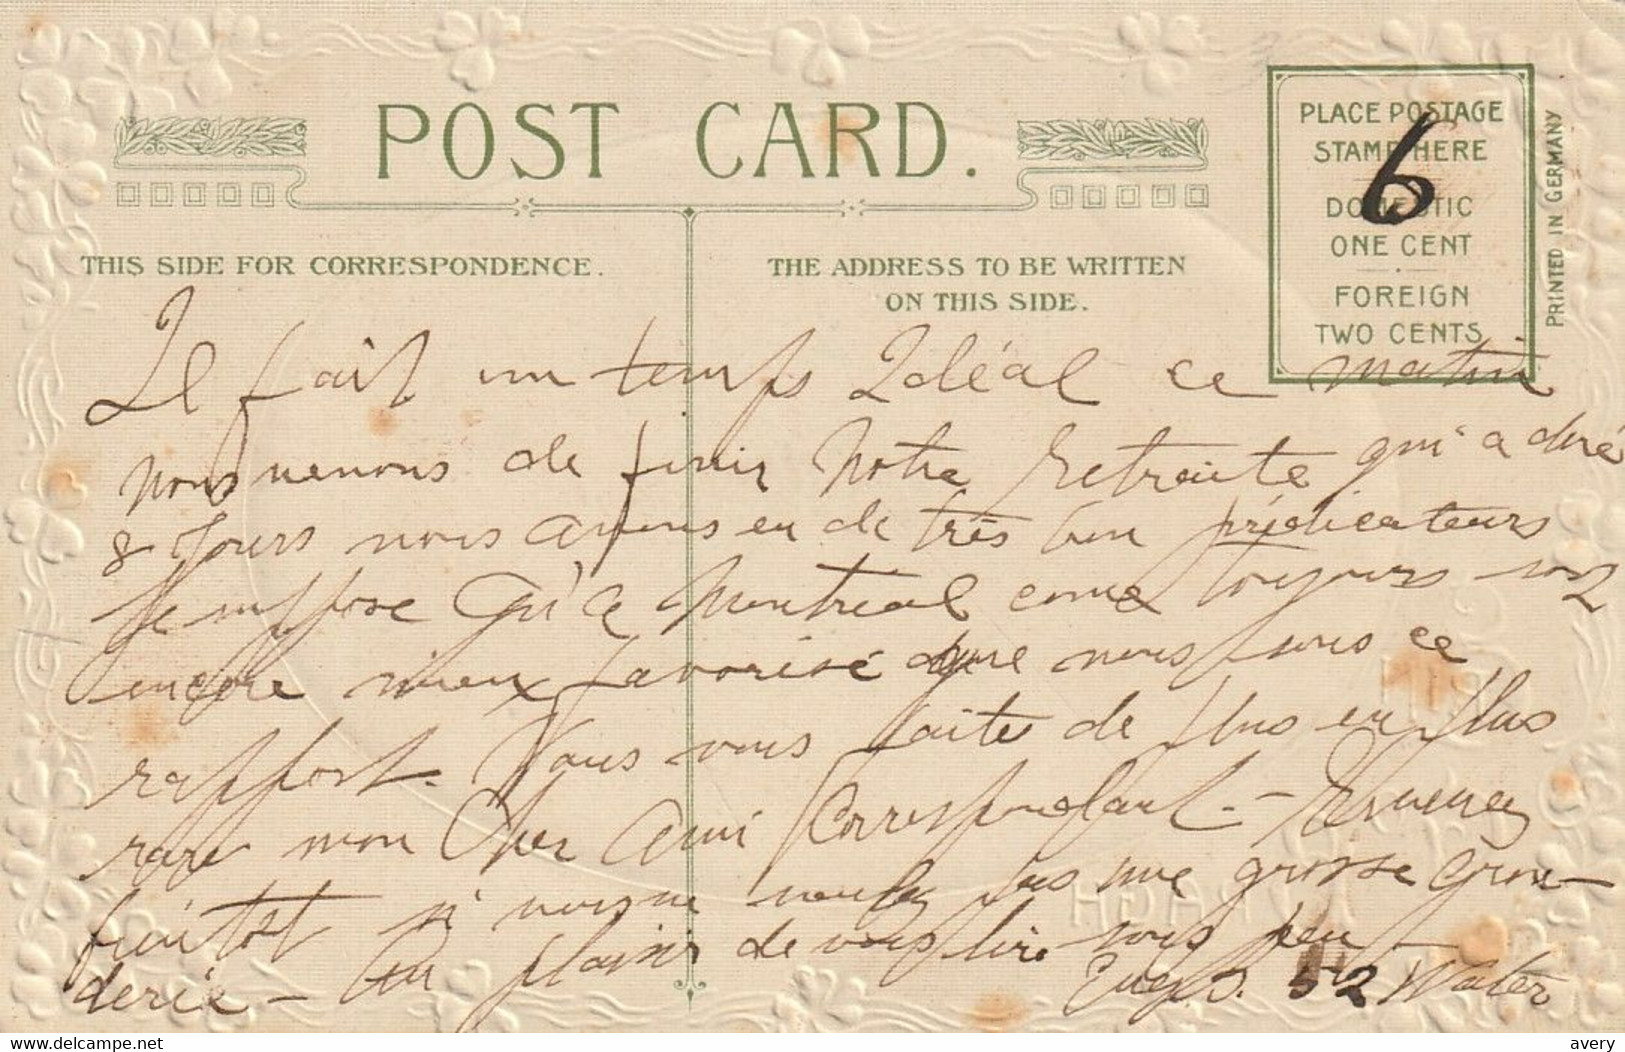 POST CARD.
PLACE POSTAGE
STAMP HERE
DOMESTIC
ONE CENT
FOREIGN
TWO CENTS
6
PRINTED IN GERMANY
THIS SIDE FOR CORRESPONDENCE.
THE ADDRESS TO BE WRITTEN
ON THIS SIDE.
Il fait un temps Idéal ce matin
nous venons de finir notre retraite qui a duré
8 Jours nous avons eu de très bon prédicateurs
Je suppose qu'a Montréal comme toujours vous
encore mieux favorisé que nous sous ce
rapport. Vous vous faite de plus en plus
rare mon Cher Ami Correspondant. - Revenez
bientot si vous ne voulez pas une grosse gron-
derie - Au plaisir de vous lire sous peu -
Eug. S. 52 Water
delcampe.net
avery